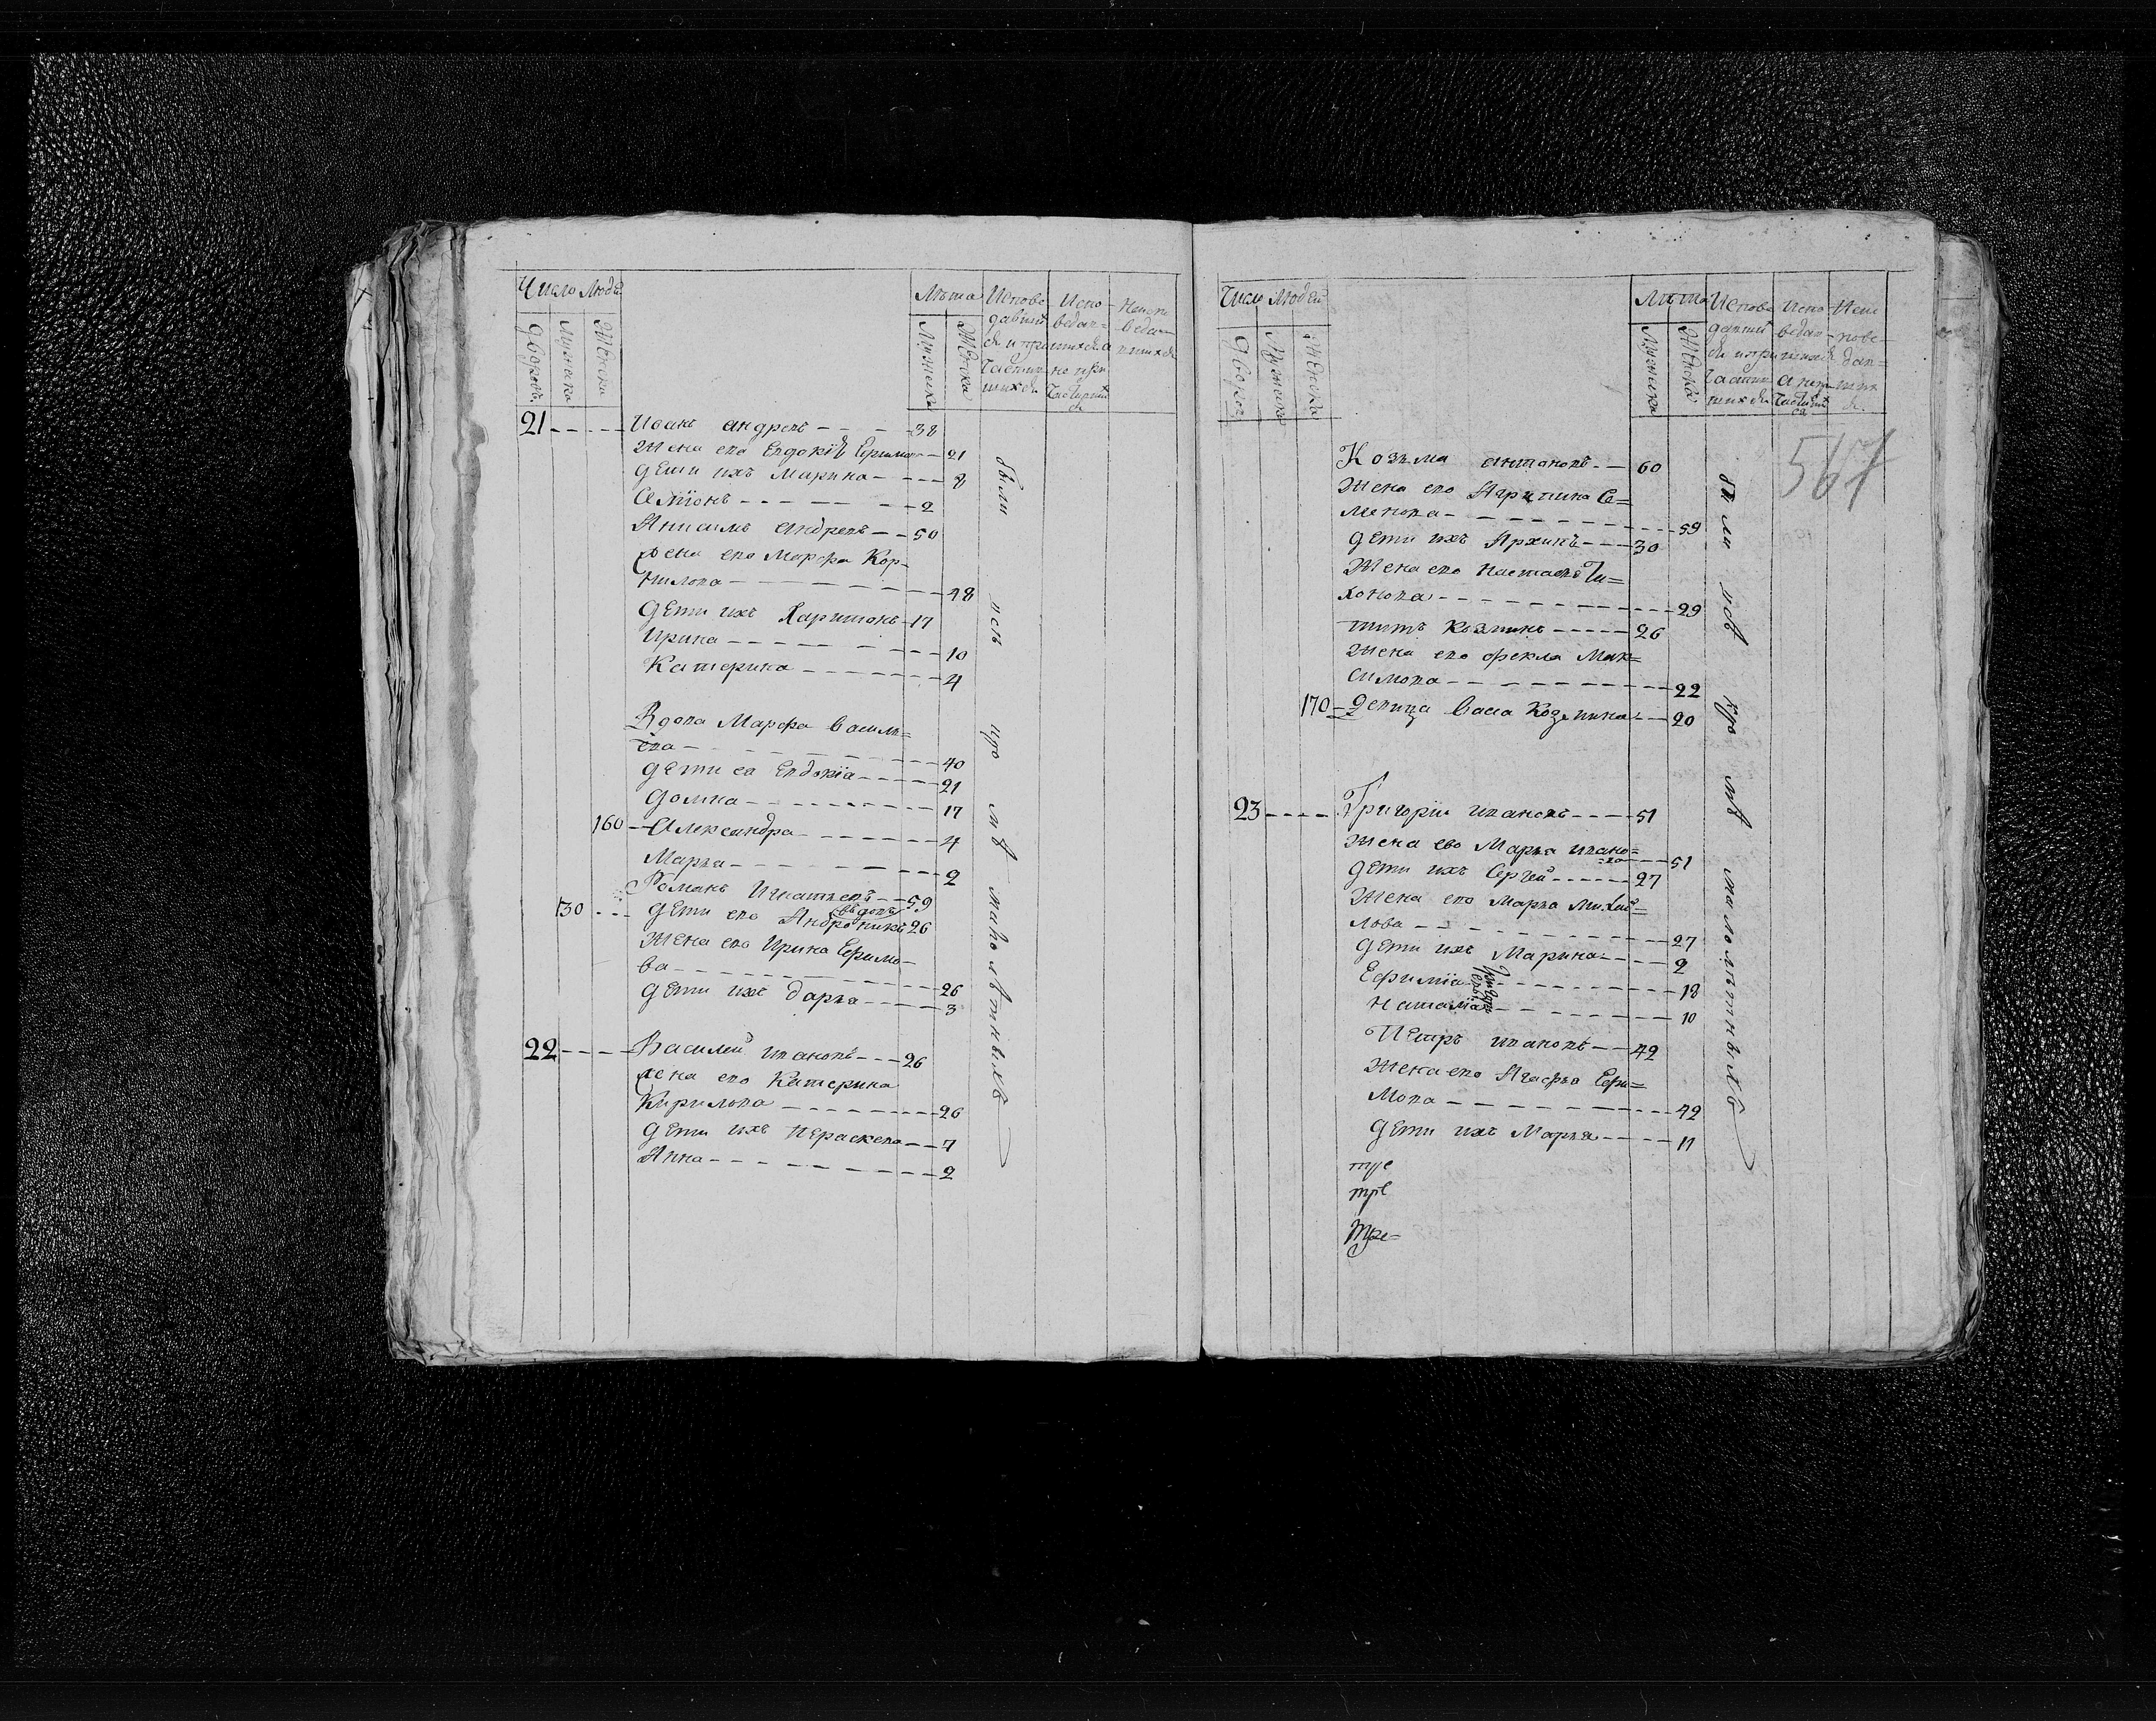 Число Люде
Дворовъ
Мужеска
Женска
Лѣта
Мужеска
Женска
Испове
давши
ся и при
частив
шихся
Испо
ведав=
шихся а
не при
частив
ся
Неиспо
ведав
шихся
21 Иванъ Андревъ 38
Жена ево Евдокія Ефимо 21
дети ихъ Марина 8
Семіонъ 2
Анисимъ Андревъ 50
Жена ево Марфа Кор-
нилова 48
дети ихъ Харитонъ 17
Ирина 10
Катерина 4
Вдова Марфа Василь=
ева 40
дети ея Евдокіа 21
Домна 17
160 Александра 4
Марья 2
Романъ Игнатьевъ 59
вдовъ
130 дети ево Андроникъ 26
Жена ево Ирина Ефимо-
ва 26
дети ихъ Дарья 3
22 Василей Ивановъ 26
Жена ево Катерина
Кирилова 26
дети ихъ Параскева 7
Анна 2
были всѣ кро мѣ малолѣтныхъ
Число Людей
Дворов
Мужеска
Женска
Лѣта
Мужеска
Женска
Испове
давши
ся и при
частив
шихся
Испо
ведав
шихся
а не при
частив
ся
Неис
пове
дав=
ших
ся.
567
Козьма Антоновъ 60
Жена ево Агрипина Се=
менова 59
дети ихъ Архипъ 30
Жена ево Настасья Ти=
хонова 29
Титъ Козминъ 26
Жена ево Фекла Мак=
симова 22
170 Девица Васа Козмина 20
23 Григорій Ивановъ 51
Жена ево Марья Ивано=
=ва 51
дети ихъ Сергей 27
Жена ево Марья Михай=
лова 27
дети ихъ Марина 2
Ефиміа 18
Наталіа 10
Григорь
евы
Петръ Ивановъ 42
Жена ево Агафья Ефи=
мова 42
дети ихъ Марья 11
тре
тре
Тре=
были всѣ кро мѣ малолѣтныхъ